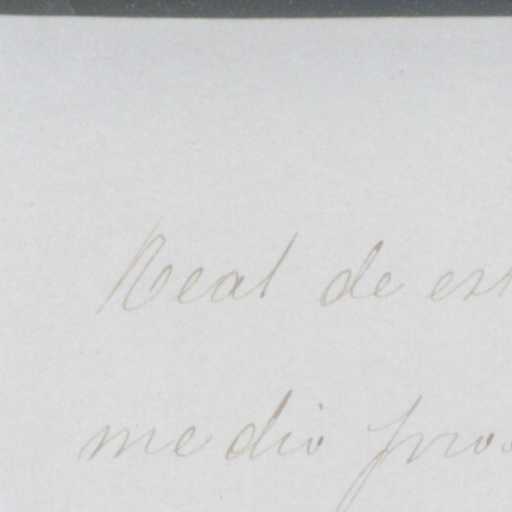 Real de est
medio pro